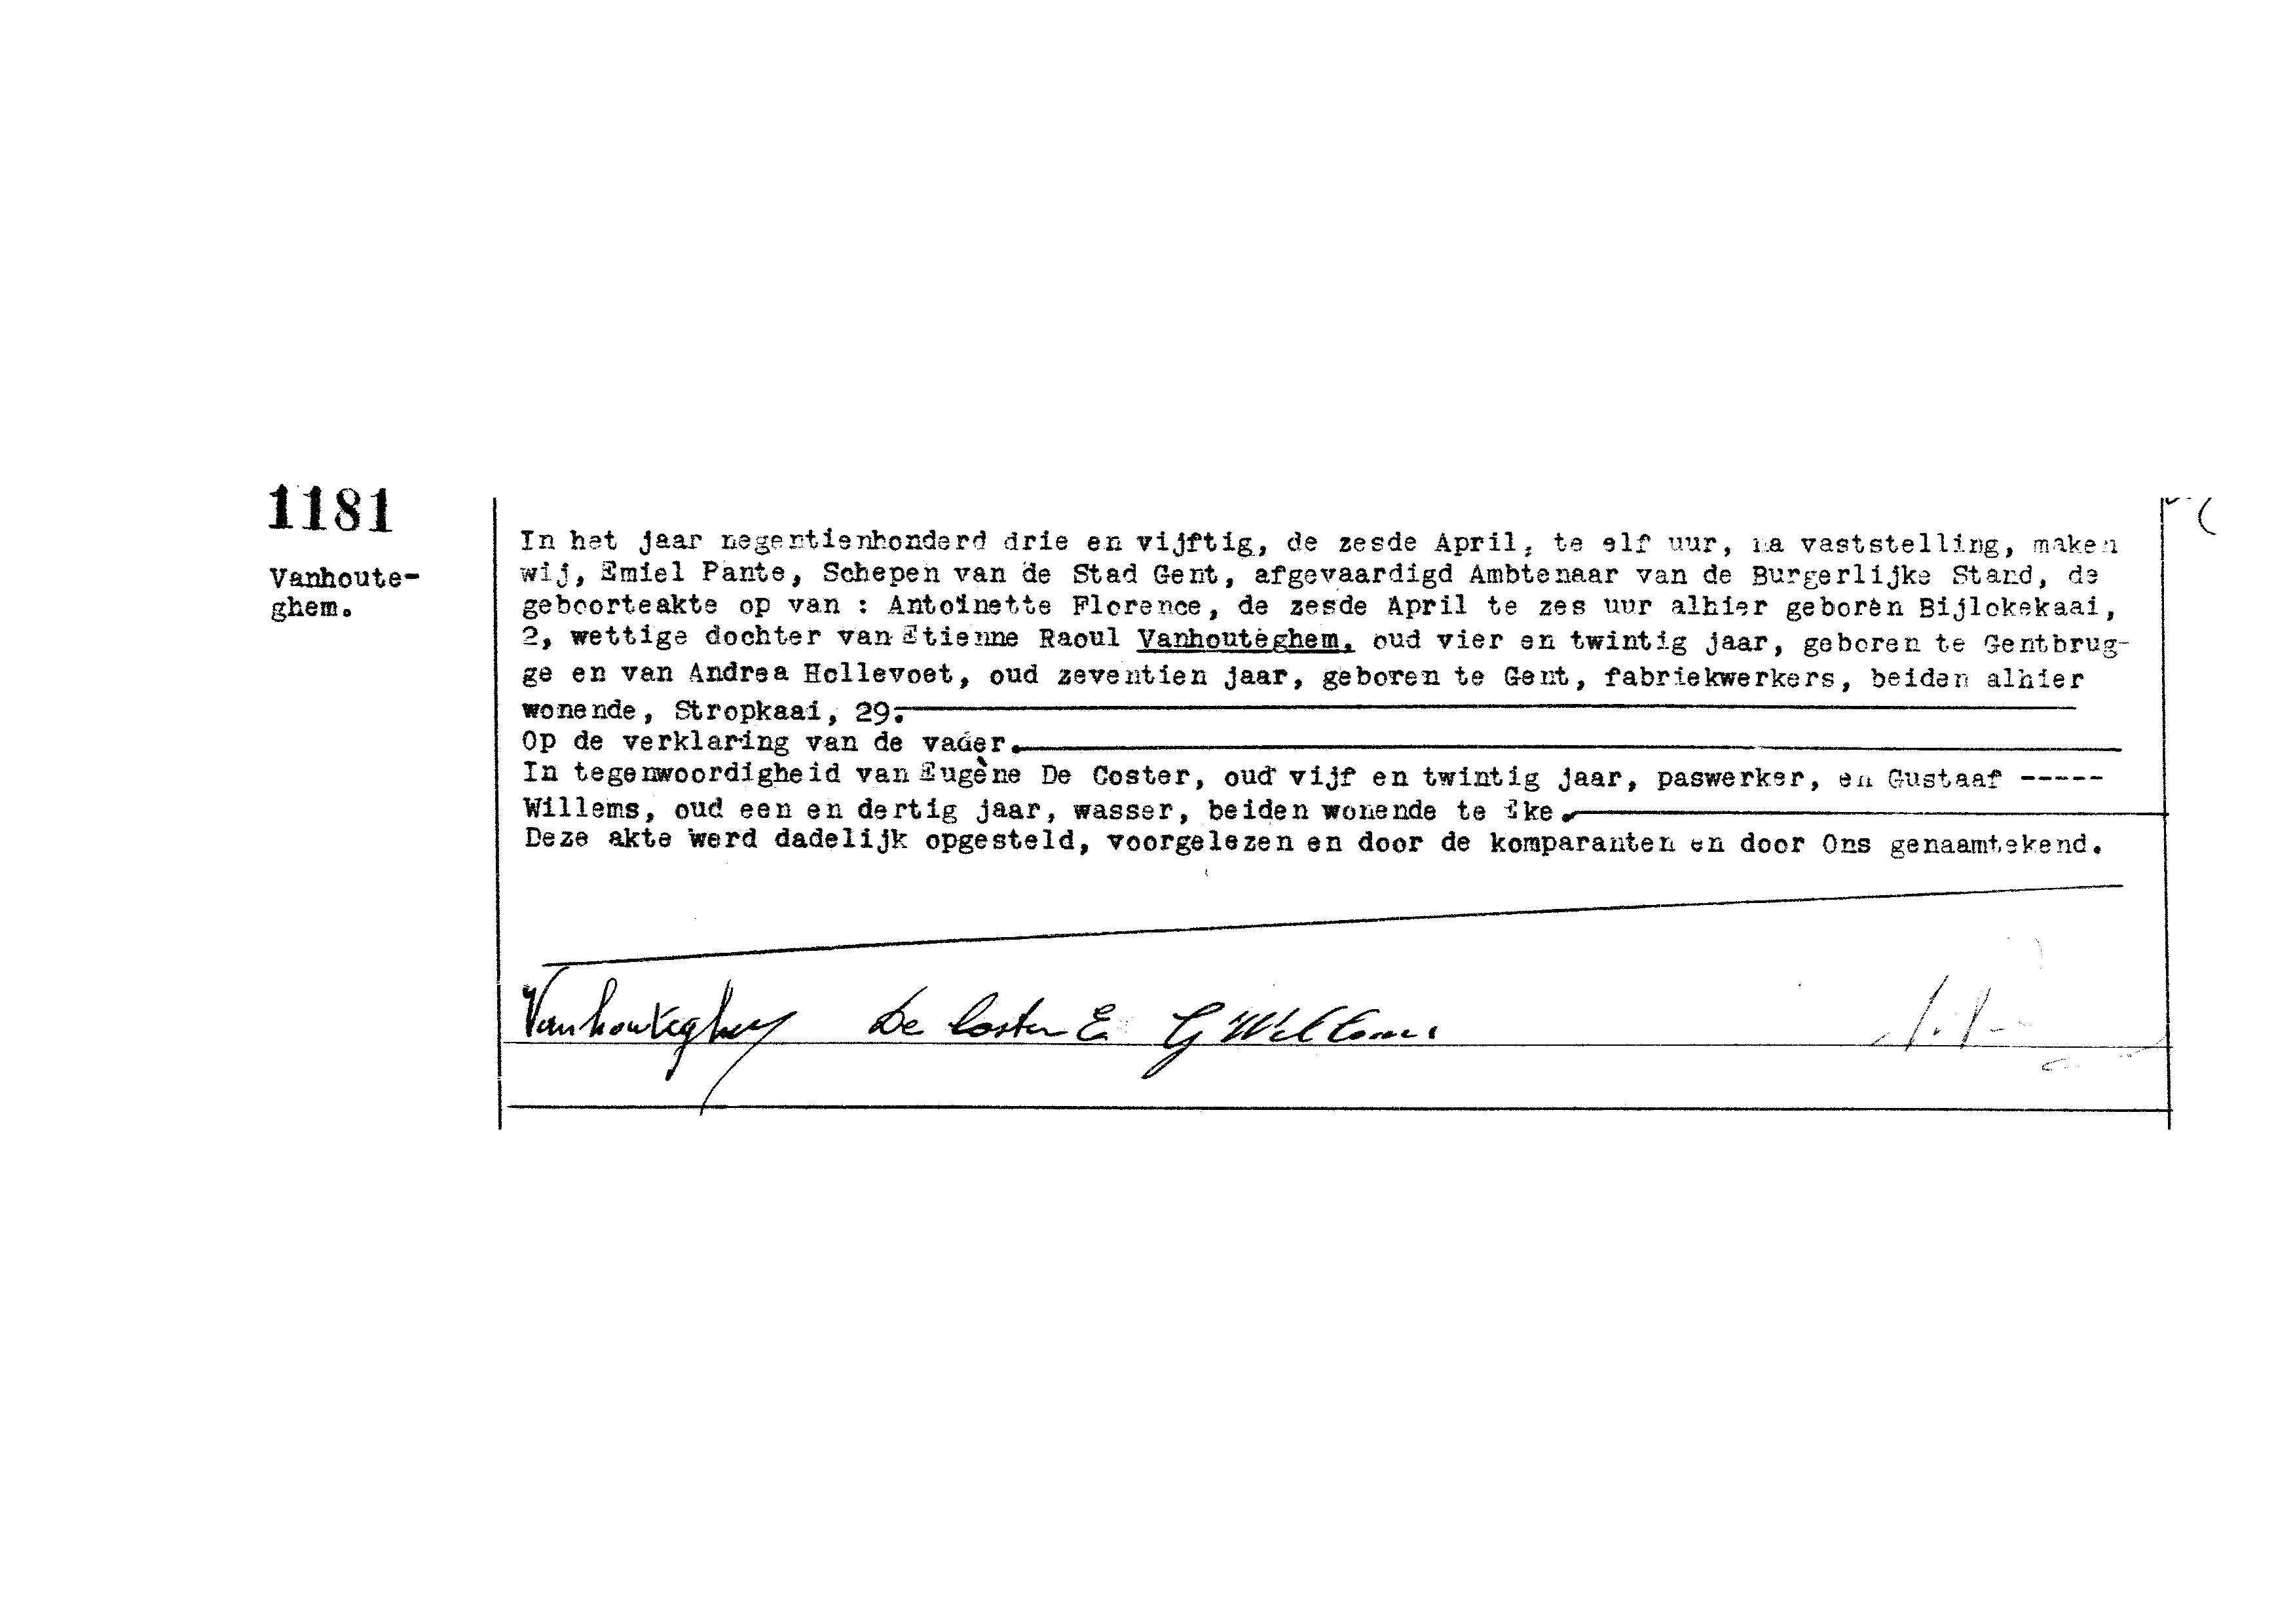 1181
Vanhoute-
ghem.
In het jaar negentienhonderd drie en vijftig, de zesde April, te elf uur, na vaststelling, maken
wij, Emiel Pante, Schepen van de Stad Gent, afgevaardigd Ambtenaar van de Burgerlijke Stand, de
geboorteakte op van : Antoinette Florence, de zesde April te zes uur alhier geboren Bijlokekaai,
2, wettige dochter van Etienne Raoul Vanhouteghem, oud vier en twintig jaar, geboren te Gentbrug-
ge en van Andrea Hollevoet, oud zeventien jaar, geboren te Gent, fabriekwerkers, beiden alhier
wonende, Stropkaai, 29.
Op de verklaring van de vader.
In tegenwoordigheid van Eugène De Coster, oud vijf en twintig jaar, paswerker, en Gustaaf -----
Willems, oud een en dertig jaar, wasser, beiden wonende te Eke.
Deze akte werd dadelijk opgesteld, voorgelezen en door de komparanten en door Ons genaamtekend.
Vanhouteghem De Coster E G Willems